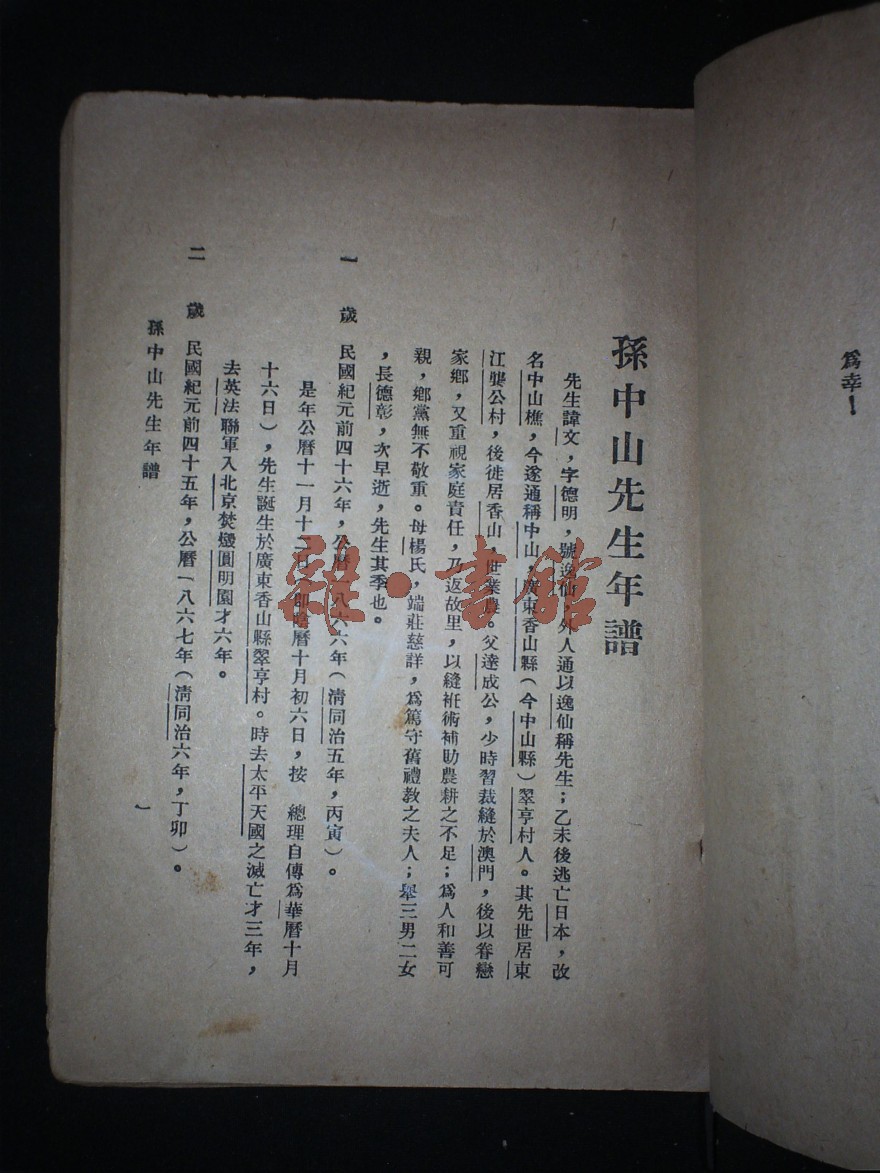 爲幸！
孫中山先生年譜
先生諱文，字德明，號逸仙，外人通以逸仙稱先生；乙未後逃亡日本，改
名中山樵，今遂通稱中山，廣東香山縣（今中山縣）翠亨村人。其先世居東
江龔公村，後徙居香山，世業農。父達成公，少時習裁縫於澳門，後以眷戀
家鄉，又重視家庭責任，乃返故里，以縫袵術補助農耕之不足；爲人和善可
親，鄉黨無不敬重。母楊氏，端莊慈詳，爲篤守舊禮教之夫人；舉三男二女
，長德彰，次早逝，先生其季也。
一　歲　民國紀元前四十六年，公曆一八六六年（淸同治五年，丙寅）。
是年公曆十一月十二日（即陰曆十月初六日，按　總理自傳爲華曆十月
十六日），先生誕生於廣東香山縣翠亨村。時去太平天國之滅亡才三年，
去英法聯軍入北京焚燬圓明園才六年。
二　歲　民國紀元前四十五年，公曆一八六七年（淸同治六年，丁卯）。
孫中山先生年譜
一
雜·書館